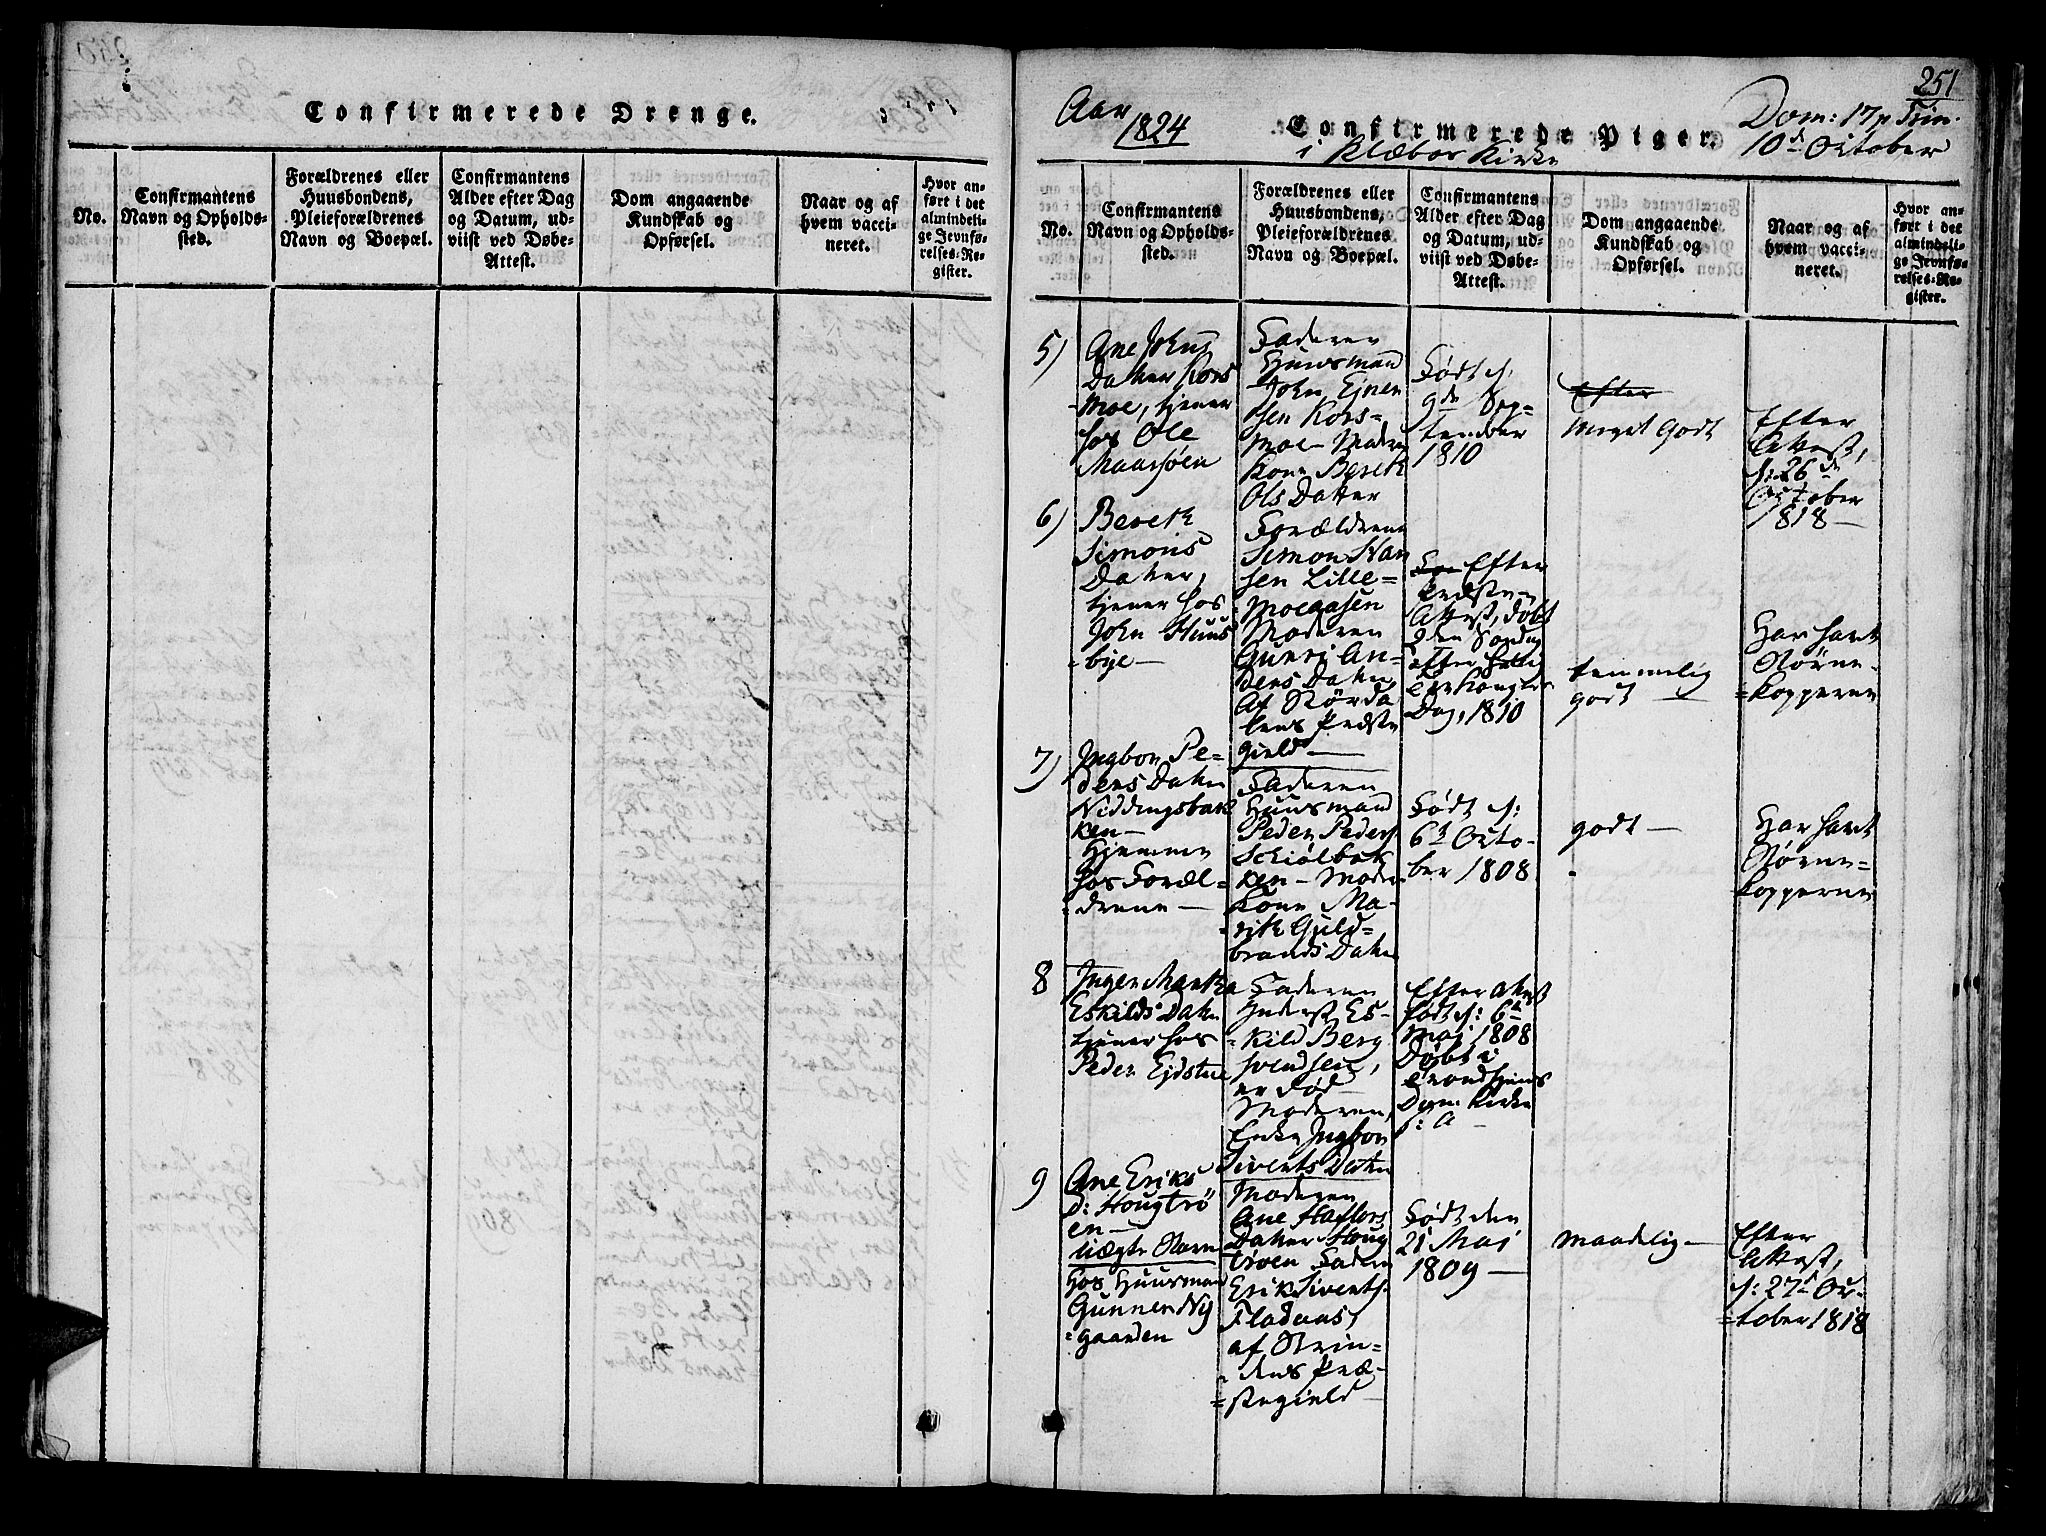 Confirmerede Drenge.
No.
Confirmantens
Navn og Opholds-
sted.
Forældrenes eller
Huusbondens,
Pleieforældrenes
Navn og Boepæl.
Confirmantens
Alder efter Dag
og Datum, ud-
viist ved Døbe-
Attest.
Dom angaaende
Kundskab og
Opførsel.
Naar og af
hvem vacci-
neret.
Hvor an-
ført i det
almindeli-
ge Jevnfø-
relses-Re-
gister.
251
Aar
1824
Confirmerede Piger.
i Klæboe Kirke
Dom: 17 p Trin.
10de October
No.
Confirmantens
Navn og Opholds-
sted.
Forældrenes eller
Huusbondens,
Pleieforældrenes
Navn og Boepæl.
Confirmantens
Alder efter Dag
og Datum, ud-
viist ved Døbe-
Attest.
Dom angaaende
Kundskab og
Opførsel.
Naar og af
hvem vacci-
neret.
Hvor an-
ført i det
almindeli-
ge Jevnfø-
relses-Re-
gister.
5)
Ane Johns
Datter Kors
moe, tjener
hos Ole
Maasjøen
Faderen
Huusmand
John Ejner
sen Kors-
moe - Moderen
Kone Bereth
Ols Datter
Født d.
9de Sep-
tember
1810
Efter
meget Godt
Efter
Attest,
d: 26de
October
1818 -
6)
Bereth
Simons
Datter,
tjener hos
John Huus
bye -
Forældrene
Simon Han
sen Lille-
moeaasen
Moderen
Gunri An-
ders Datter,
Af Størda
lens Præste
gield -
Efter
Præstens
Attest, døbt
den Søndag
efter Hellig
Tre Kongers
Dag, 1810
temmelig
godt -
Har havt
Børne-
kopperne
7)
Ingbor Pe-
ders Datter
Niddingsbak
ken -
Hjemme
hos Foræl-
drene -
Faderen
Huusmand
Peder Peders
Schiølbak
ken - Moder
Kone Ma-
rith Guld-
brands Datter
Født d:
6te Octo-
ber 1808
godt -
Har havt
Børne-
kopperne
8
Inger Martha
Eskilds Datter
tjener hos
Peder Ejdstue
Faderen
Inderst Es-
kild Berg
svendsen,
er død
Moderen,
Enke Ingbor
Siverts Datter
Efter Attest
født d: 6te
Maj 1808
Døbt i
Trondhjems
Dom Kirke
s: A -
9
Ane Eriks
D: Hougtrö
en -
Uægte Barn
hos Huusmand
Gunner Ny
gaarden
Moderen
Ane Haflors
Datter Houg
trøen Faderen
Erik Siverts.
Fladaas,
af Strin-
dens Præ-
stegield
Født den
21 Maj
1809 -
maadelig -
Efter
Attest,
d: 27de Oc-
tober 1818